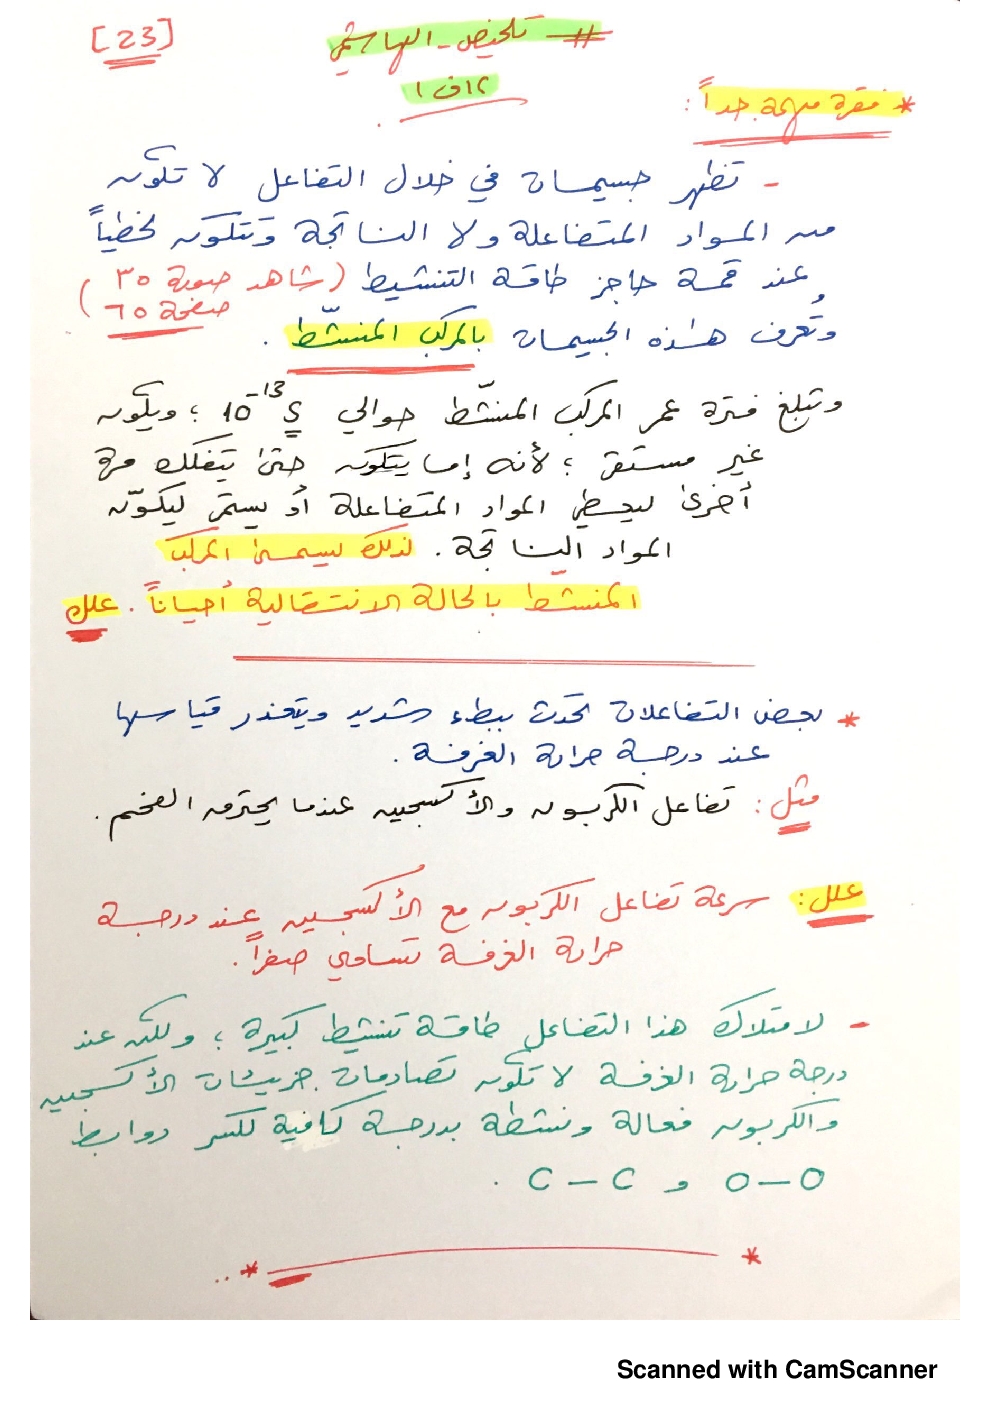 [23]
# تلخيص - الهاشمي #
٢ ف ١
* فقرة مهمة جداً :
- تظهر جسيمات في خلال التفاعل لا تكون
من المواد المتفاعلة ولا الناتجة وتتكون لحظياً
عند قمة حاجز طاقة التنشيط (شاهد صورة ٣٥
صفحة ٦٥)
وتُعرف هذه الجسيمات بالمركب المنشّط .
وتبلغ فترة عمر المركب المنشّط حوالي 10⁻¹³ S ؛ ويكون
غير مستقر ؛ لأنه إما يتكون حتى يتفكك مرة
أخرى ليعطي المواد المتفاعلة أو يستمر ليكوّن
المواد الناتجة . لذلك يسمى المركب
المنشط بالحالة الانتقالية أحياناً . علل
* بعض التفاعلات تحدث ببطء شديد ويتعذر قياسها
عند درجة حرارة الغرفة .
مثل : تفاعل الكربون والأكسجين عندما يحترق الفحم .
علل : سرعة تفاعل الكربون مع الأكسجين عند درجة
حرارة الغرفة تساوي صفراً .
- لامتلاك هذا التفاعل طاقة تنشيط كبيرة ؛ ولكن عند
درجة حرارة الغرفة لا تكون تصادمات جزيئات الأكسجين
والكربون فعالة ونشطة بدرجة كافية لكسر روابط
O-O و C-C .
* ـــــ * ..
Scanned with CamScanner